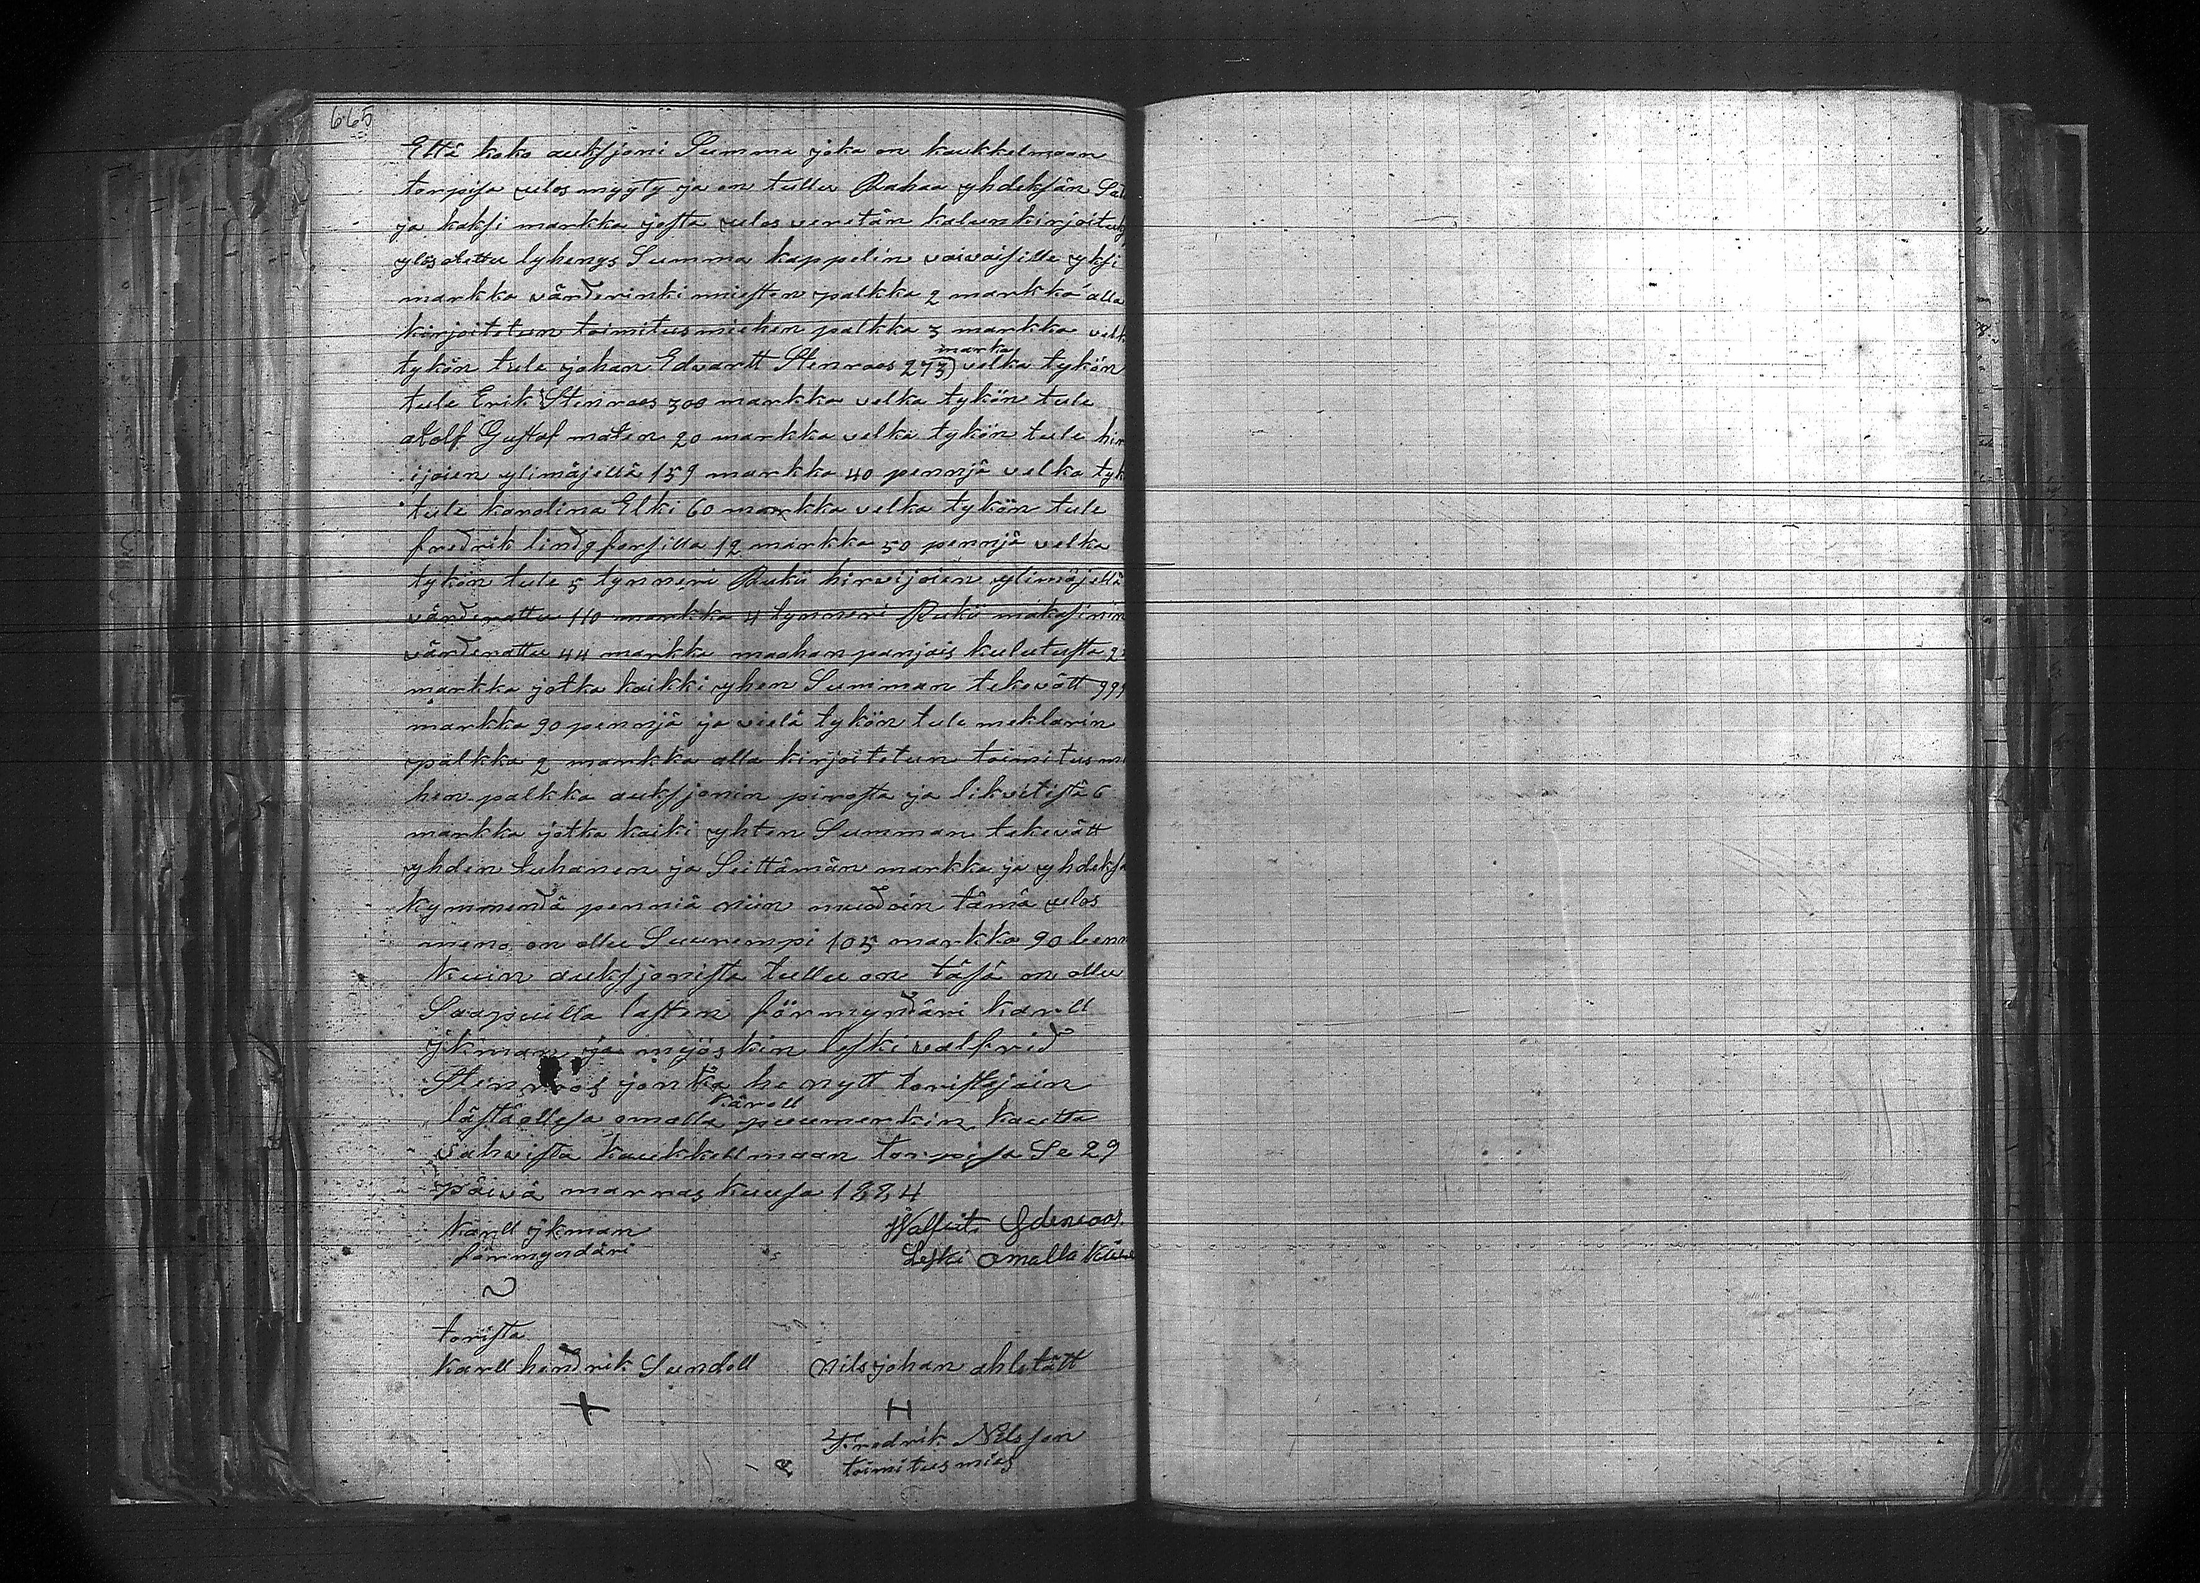 665
Että koko auksjoni Summa joka on kaukkelmaan
torpisa ulos myyty ja on tullu Rahaa yhdeksän Sat
ja kaksi markka josta ulos veretän kalunkirjoituks
ylös otettu lyhengs Summa kappelin vaivaisille yksi
markka värderinki miesten palkka 2 markka alla
kirjoitetun toimitus miehen palkka 3 markka velk
tykön tule johan Edvartt Stenroos 273 marka velka tykön
tule Erik Stenroos 300 markka velka tykön tule
adolf Gustaf maten 20 markka velka tykön tule hir
ijoien ylimäjellä 159 markka 40 pennjä velka tyk
tule karolina Elki 60 markka velka tykön tule
fredrik lindgforsilla 12 markka 50 pennjä velka
tykön tule 5 tynneri Rukii hirvijoien ylimäjellä
värderattu 110 markka 4 tynneri Rukii makasinin
värderattu 44 markka maahan panjais kulutusta 2
markka jotka kaikki yhen Summan tekevätt 999
markka 90 pennjä ja vielä tykön tule meklarin
palkka 2 markka alla kirjoitetun toimitus mi
hen palkka auksjonin pirosta ja likvitistä 6
markka jotka kaiki yhten Summan tekevätt
yhden tuhanen ja Seittämän markka ja yhdeksä
kymmendä penniä niin muodoin tämä ulos
meno on ollu Suurempi 105 markka 90 benn
kuin auksjonista tullu on täsä on ollu
Saapuilla lasten förmyndäri karll
ijkman ja myöskin leski valfrid
Stenroos jonka he nytt toristejain
lästäollesa omalla käroll puumerkin kautta
vahvista kaukkellmaan torpisa Se 29
päivä marras kuusa 1884
karll ijkman
förmyndäri
Walfrit Sdenroos
Leski omalla käre
torista
karll hendrik Sundell nils johan ahlstätt
+ H
Fredrik Nilsson
toimitus mies